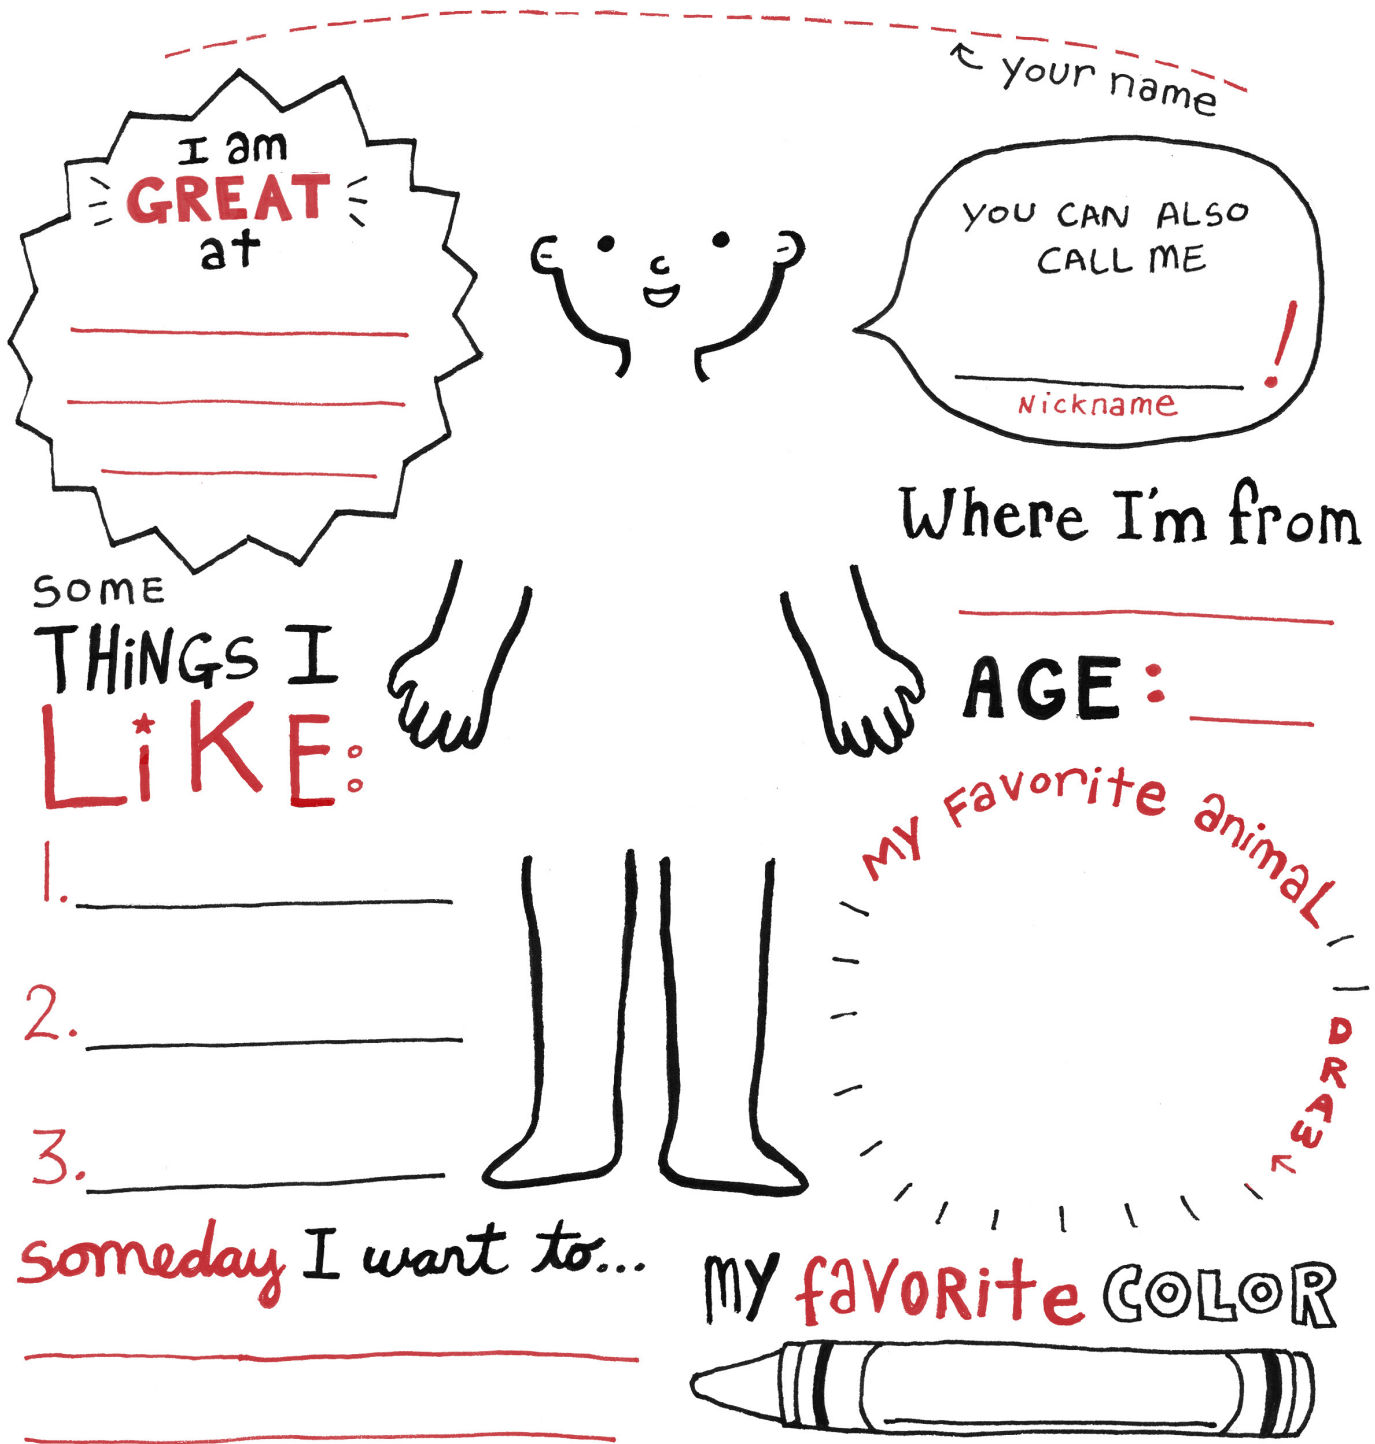 your name
I am
GREAT
at
YOU CAN ALSO
CALL ME
!
Nickname
Where I'm from
AGE:
SOME
THiNGS I
LiKE:
1.
2.
3.
MY Favorite animal
DRAW
someday I want to...
MY faVoRite COLOR